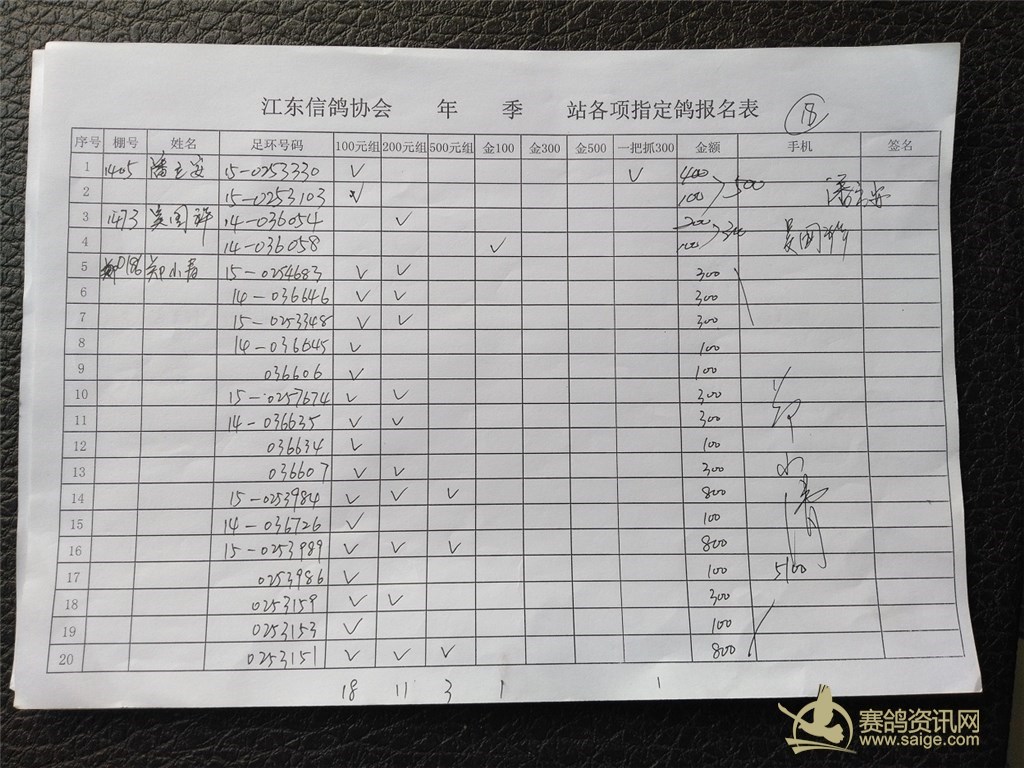 江东信鸽协会 年 季 站各项指定鸽报名表 18
序号 棚号 姓名 足环号码 100元组 200元组 500元组 金100 金300 金500 一把抓300 金额 手机 签名
1 1405 15-0253330 ✓ ✓ 400
2 15-0253103 ✓ 100 500
3 1473 吴国祥 14-036054 ✓ 200
4 14-036058 ✓ 100 300 吴国祥
5 0186 郑小清 15-0254683 ✓ ✓ 300
6 14-036646 ✓ ✓ 300
7 15-0253348 ✓ ✓ 300
8 14-036645 ✓ 100
9 036606 ✓ 100
10 15-0257674 ✓ ✓ 300
11 14-036635 ✓ ✓ 300
12 036634 ✓ 100
13 036607 ✓ ✓ 300
14 15-0253984 ✓ ✓ ✓ 800
15 14-036726 ✓ 100
16 15-0253989 ✓ ✓ ✓ 800
17 0253986 ✓ 100 5100
18 0253159 ✓ ✓ 300
19 0253153 ✓ 100
20 0253151 ✓ ✓ ✓ 800
18 11 3 1 1
赛鸽资讯网
www.saige.com